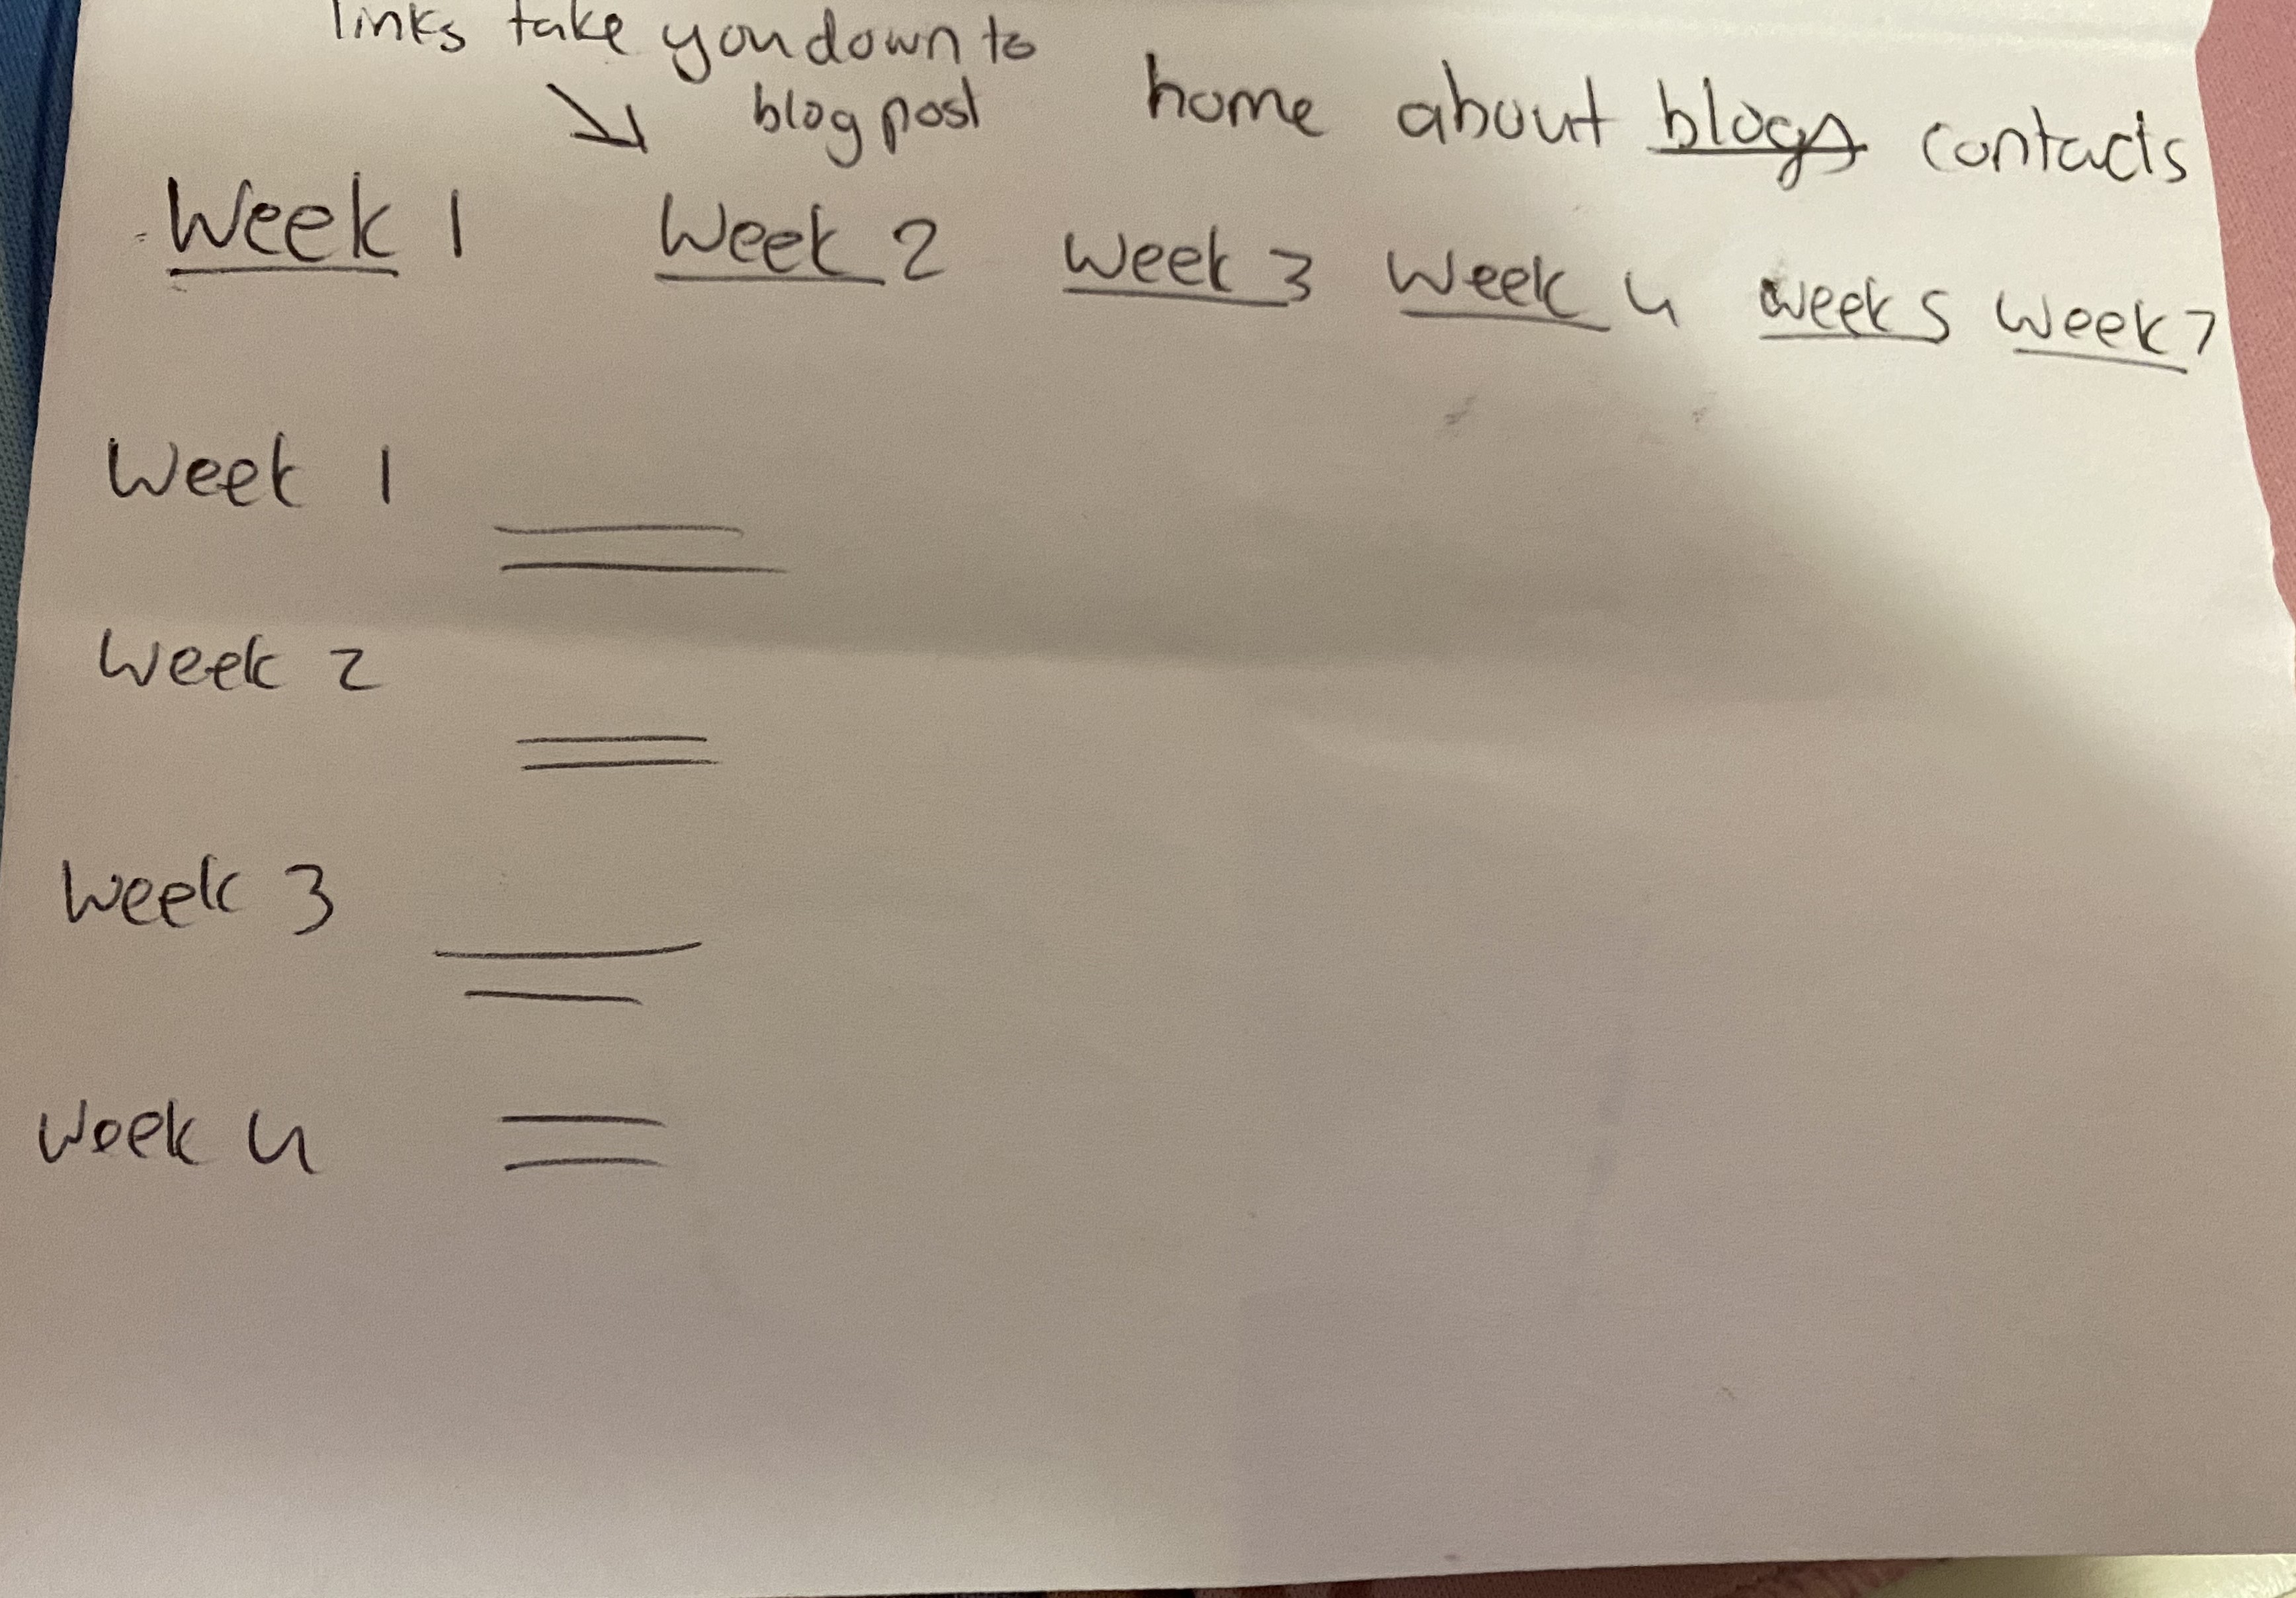 links take you down to
blog post
home about blogs contacts
Week 1 Week 2 Week 3 Week 4 week 5 Week 7
Week 1
Week 2
Week 3
Week 4